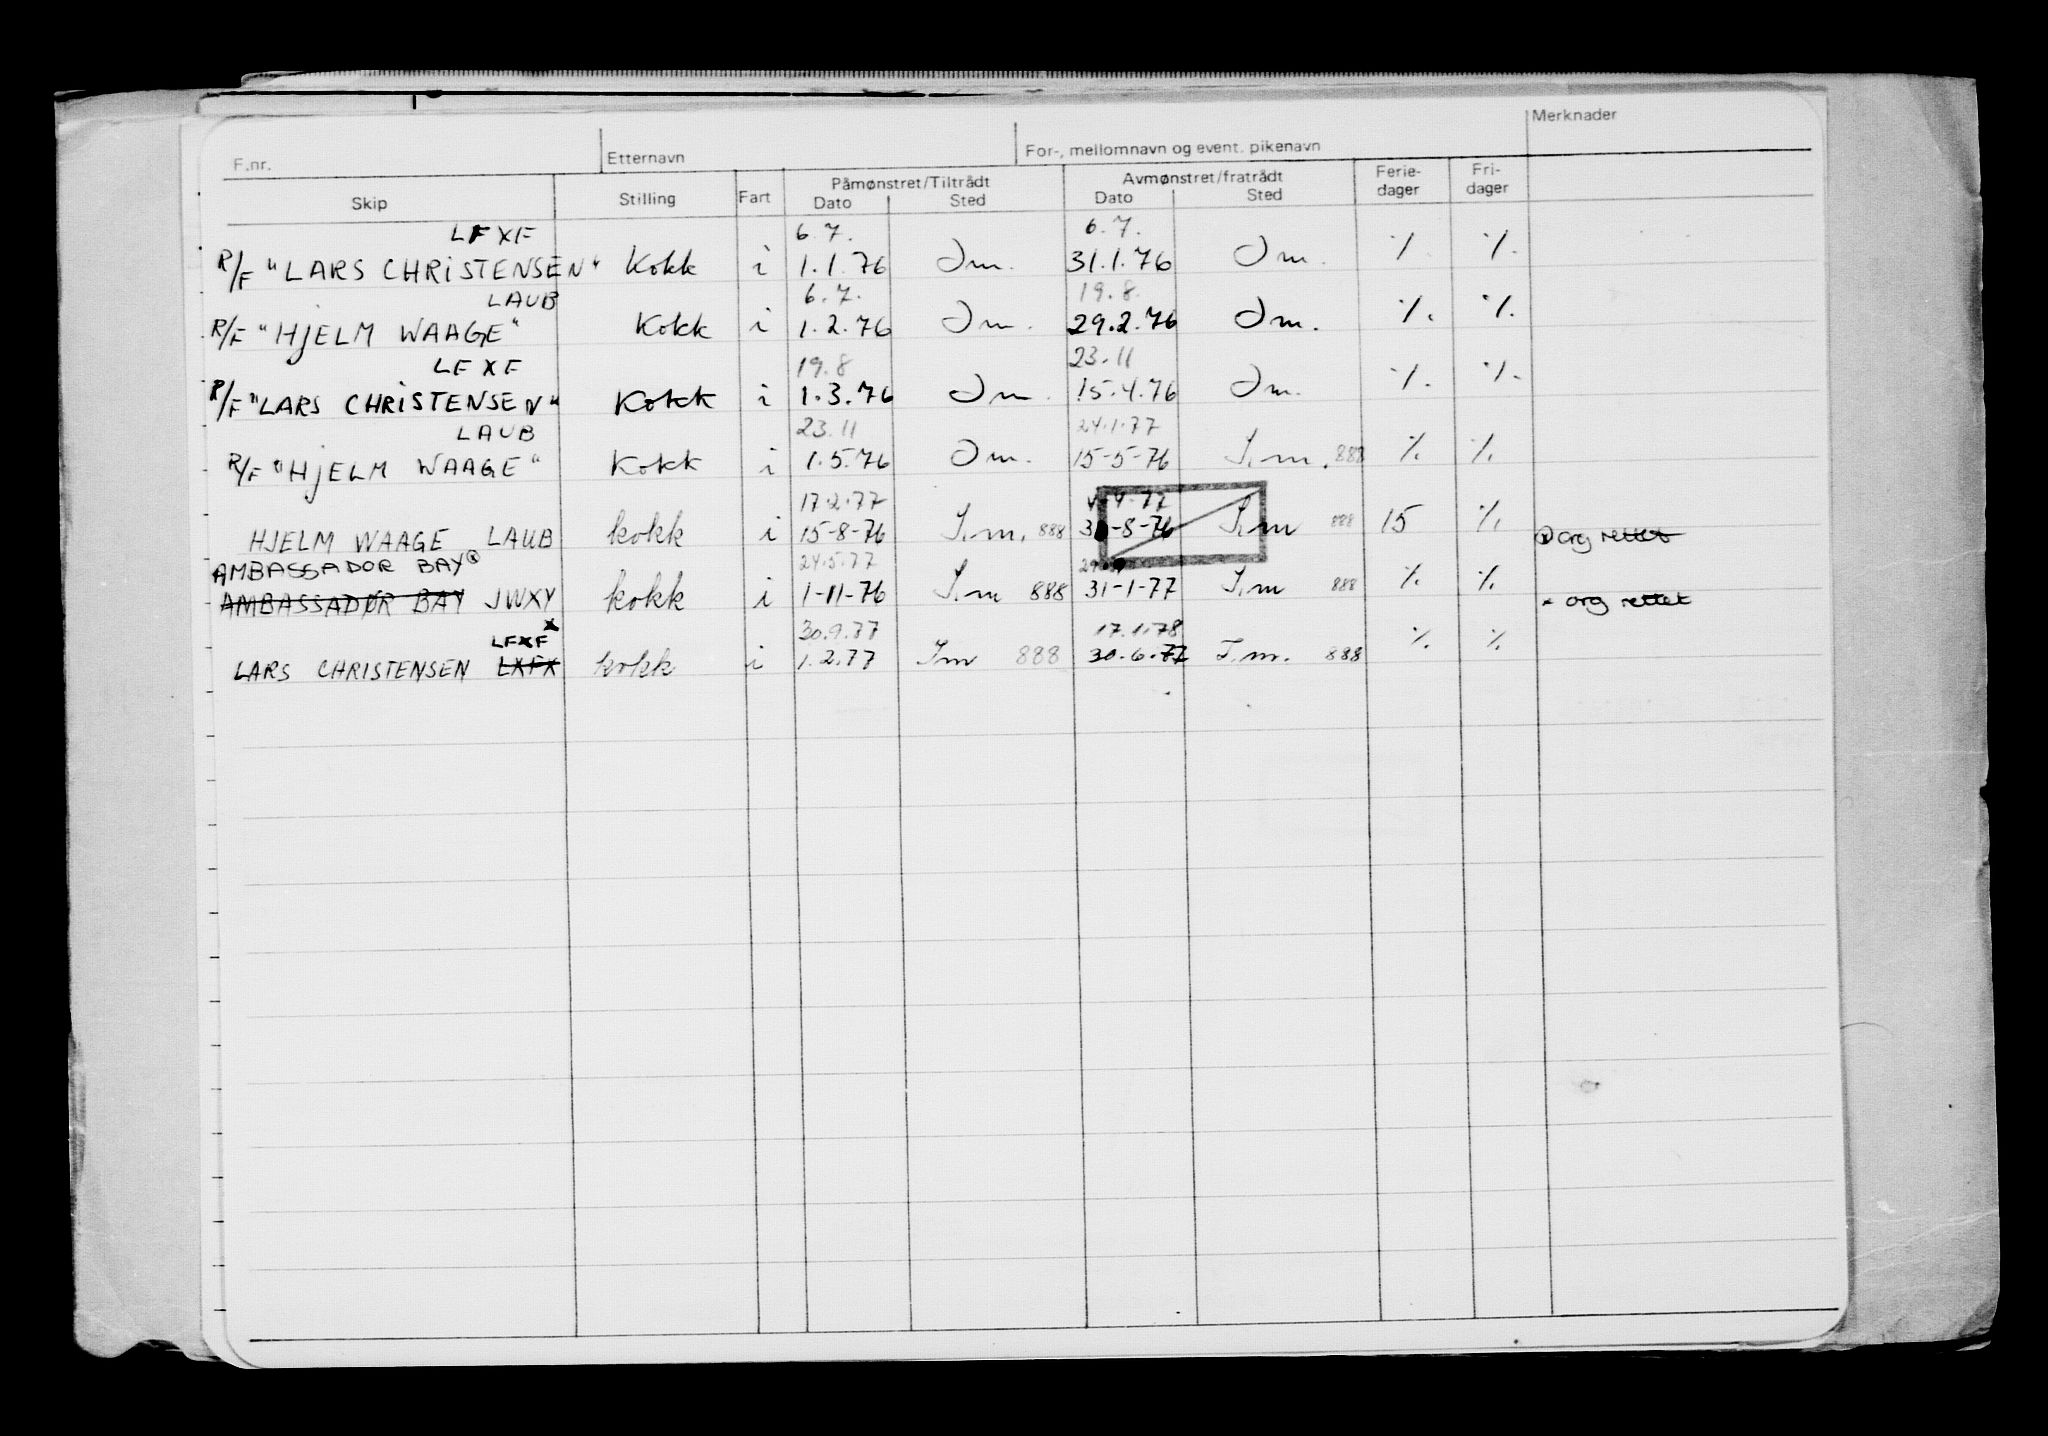 F.nr. Etternavn For-, mellomnavn og event. pikenavn Merknader
Skip Stilling Fart Påmønstret/Tiltrådt Avmønstret/fratrådt Ferie- Fri-
Dato Sted Dato Sted dager dager
LFXF 6.7. 6.7.
R/F "LARS CHRISTENSEN" Kokk i 1.1.76 Im. 31.1.76 Im. % %
LAUB 6.7. 19.8.
R/F "HJELM WAAGE" Kokk i 1.2.76 Im. 29.2.76 Im. % %
LFXF 19.8 23.11
R/F "LARS CHRISTENSEN" Kokk i 1.3.76 Im. 15.4.76 Im. % %
LAUB 23.11 24.1.77
R/F "HJELM WAAGE" Kokk i 1.5.76 Im. 15-5-76 I.m. 888 % %
17.2.77
HJELM WAAGE LAUB kokk i 15-8-76 I.m. 888 -8-76 I.m 888 15 % org rettet
AMBASSADOR BAY 24.5.77
AMBASSADØR BAY JWXY kokk i 1-11-76 I.m 888 31-1-77 I.m 888 % % org rettet
LFXF x 30.9.77 17.1.78
LARS CHRISTENSEN LXFX kokk i 1.2.77 Im 888 30.6.77 I.m. 888 % %